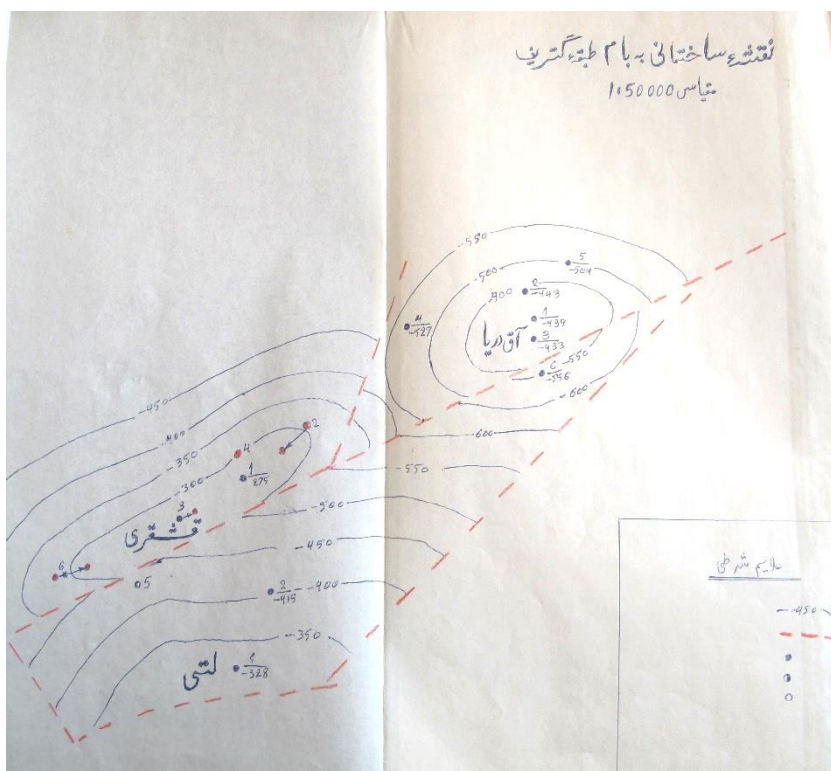 نقشهٔ ساختمانی به بام طبقهٔ گتریف
مقیاس 1:50000
-550
5
-504
-500
2
-443
-400
1
-439
4
-527
آق دریا
3
-433
-550
6
-556
-600
-450
-600
-400
2
-350
4
-550
1
275
-300
3
-500
قشقری
-450
6
5
2
-415
-400
-350
لتی
1
-328
علایم شرطی
-450